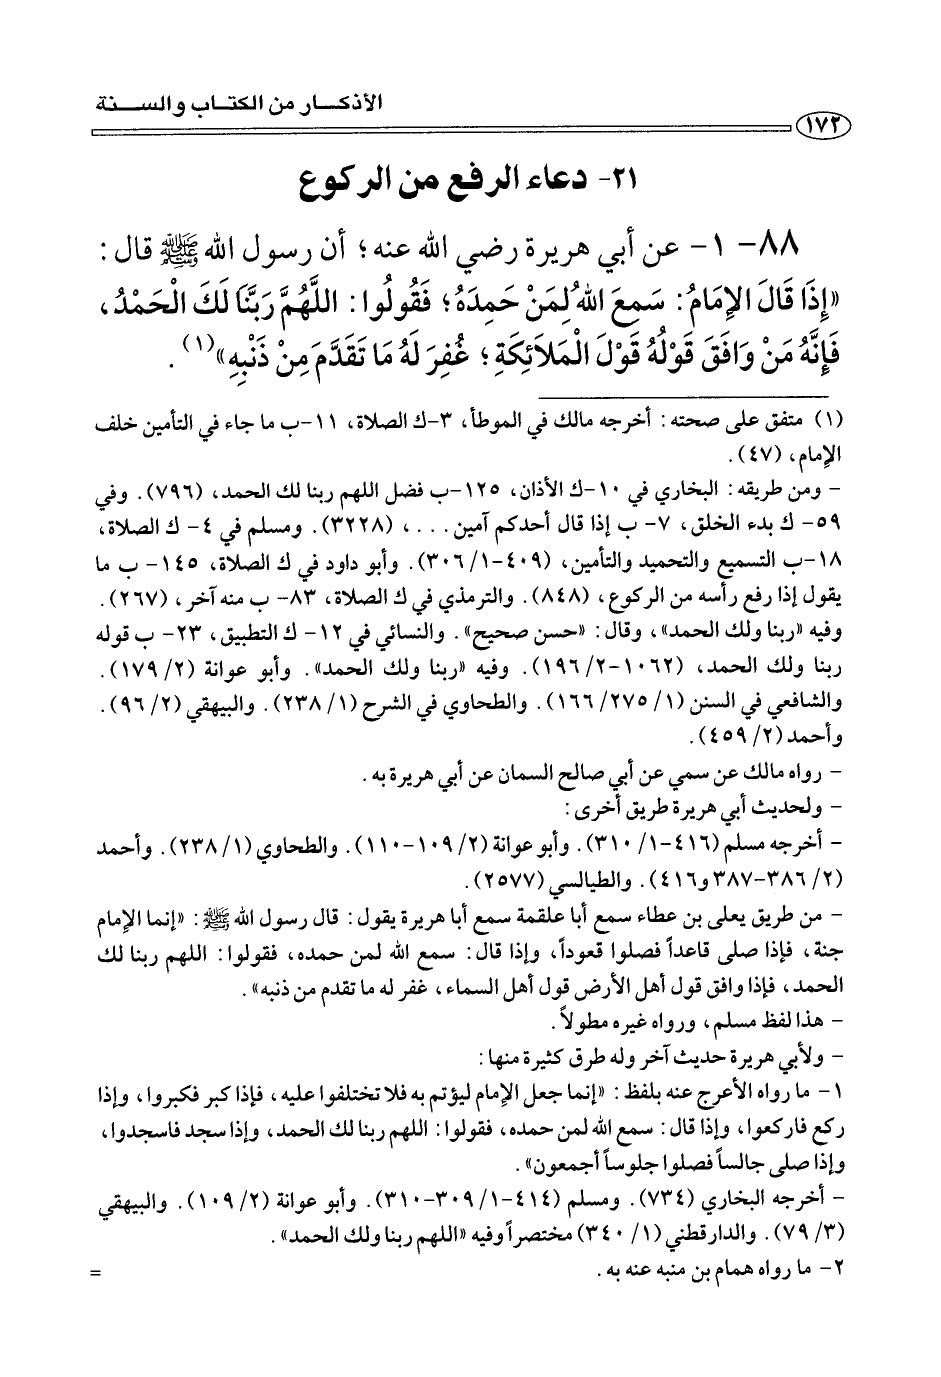 الأذكـــار من الكتـــاب والســـنة
١٧٢
٢١- دعاء الرفع من الركوع
٨٨- ١- عن أبي هريرة رضي الله عنه؛ أن رسول الله ﷺ قال:
«إِذَا قَالَ الإِمَامُ: سَمِعَ اللهُ لِمَنْ حَمِدَهُ؛ فَقُولُوا: اللَّهُمَّ رَبَّنَا لَكَ الْحَمْدُ،
فَإِنَّهُ مَنْ وَافَقَ قَوْلُهُ قَوْلَ الْمَلَائِكَةِ؛ غُفِرَ لَهُ مَا تَقَدَّمَ مِنْ ذَنْبِهِ»(١).
(١) متفق على صحته: أخرجه مالك في الموطأ، ٣-ك الصلاة، ١١-ب ما جاء في التأمين خلف
الإمام، (٤٧).
- ومن طريقه: البخاري في ١٠-ك الأذان، ١٢٥-ب فضل اللهم ربنا لك الحمد، (٧٩٦). وفي
٥٩- ك بدء الخلق، ٧- ب إذا قال أحدكم آمين ...، (٣٢٢٨). ومسلم في ٤- ك الصلاة،
١٨-ب التسميع والتحميد والتأمين، (٤٠٩-١/ ٣٠٦). وأبو داود في ك الصلاة، ١٤٥- ب ما
يقول إذا رفع رأسه من الركوع، (٨٤٨). والترمذي في ك الصلاة، ٨٣- ب منه آخر، (٢٦٧).
وفيه «ربنا ولك الحمد»، وقال: «حسن صحيح». والنسائي في ١٢- ك التطبيق، ٢٣- ب قوله
ربنا ولك الحمد، (١٠٦٢-٢/ ١٩٦). وفيه «ربنا ولك الحمد». وأبو عوانة (٢/ ١٧٩).
والشافعي في السنن (١/ ٢٧٥/ ١٦٦). والطحاوي في الشرح (١/ ٢٣٨). والبيهقي (٢/ ٩٦).
وأحمد (٢/ ٤٥٩).
- رواه مالك عن سمي عن أبي صالح السمان عن أبي هريرة به.
- ولحديث أبي هريرة طريق أخرى:
- أخرجه مسلم (٤١٦-١/ ٣١٠). وأبو عوانة (٢/ ١٠٩-١١٠). والطحاوي (١/ ٢٣٨). وأحمد
(٢/ ٣٨٦-٣٨٧ و٤١٦). والطيالسي (٢٥٧٧).
- من طريق يعلى بن عطاء سمع أبا علقمة سمع أبا هريرة يقول: قال رسول الله ﷺ: «إنما الإمام
جنة، فإذا صلى قاعداً فصلوا قعوداً، وإذا قال: سمع الله لمن حمده، فقولوا: اللهم ربنا لك
الحمد، فإذا وافق قول أهل الأرض قول أهل السماء، غفر له ما تقدم من ذنبه».
- هذا لفظ مسلم، ورواه غيره مطولاً.
- ولأبي هريرة حديث آخر وله طرق كثيرة منها:
١- ما رواه الأعرج عنه بلفظ: «إنما جعل الإمام ليؤتم به فلا تختلفوا عليه، فإذا كبر فكبروا، وإذا
ركع فاركعوا، وإذا قال: سمع الله لمن حمده، فقولوا: اللهم ربنا لك الحمد، وإذا سجد فاسجدوا،
وإذا صلى جالساً فصلوا جلوساً أجمعون».
- أخرجه البخاري (٧٣٤). ومسلم (٤١٤-١/ ٣٠٩-٣١٠). وأبو عوانة (٢/ ١٠٩). والبيهقي
(٣/ ٧٩). والدارقطني (١/ ٣٤٠) مختصراً وفيه «اللهم ربنا ولك الحمد».
٢- ما رواه همام بن منبه عنه به.
=